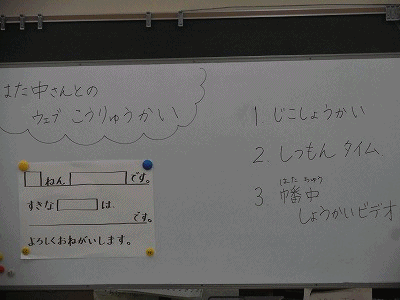 はた中さんとの
ウェブ こうりゅうかい
1. じこしょうかい
2. しつもん タイム
3. 幡中
はた ちゅう
しょうかいビデオ
ねん です。
すきな は
です。
よろしくおねがいします。